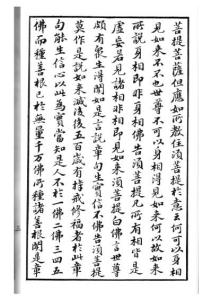 菩提菩薩但應如所教住須菩提於意云何可以身相
見如來不不也世尊不可以身相得見如來何以故如來
所說身相即非身相佛告須菩提凡所有相皆是
虛妄若見諸相非相即見如來須菩提白佛言世尊
頗有衆生得聞如是言說章句生實信不佛告須菩提
莫作是說如來滅後後五百歲有持戒修福者於此章
句能生信心以此為實當知是人不於一佛二佛三四五
佛而種善根已於無量千万佛所種諸善根聞是章